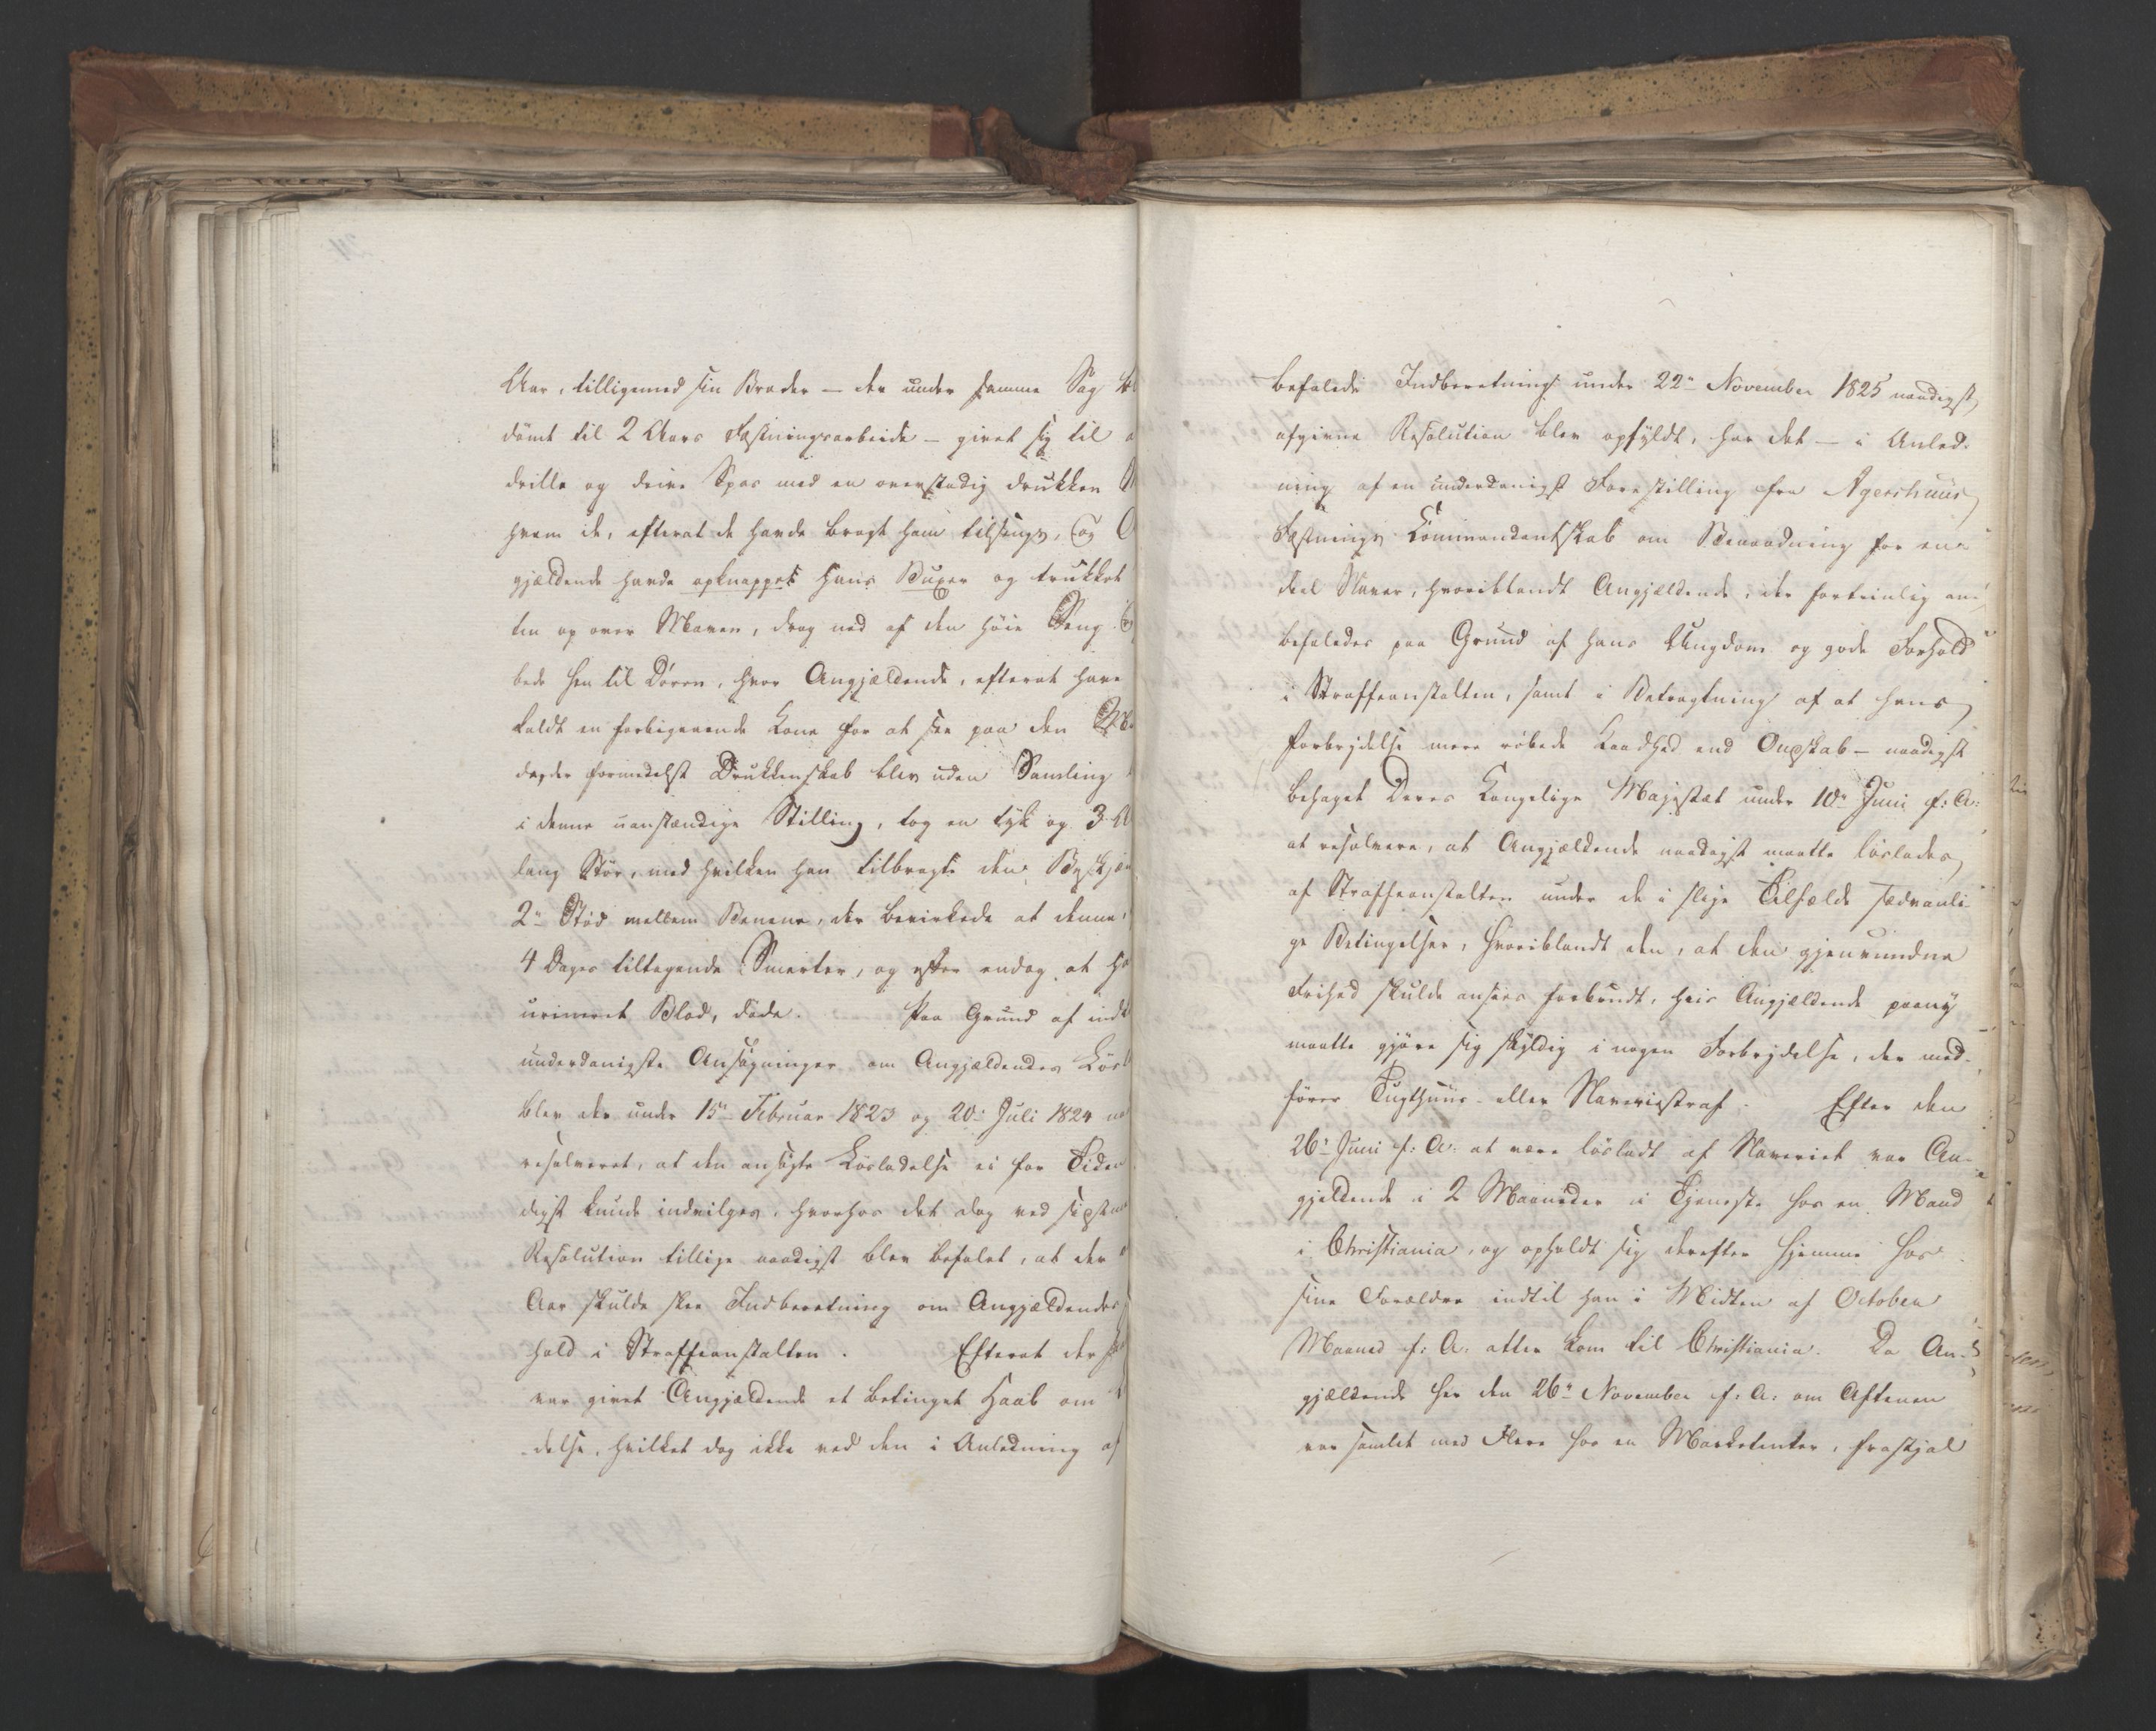 Aar, tilligemed sin Broder – der under samme Sag bl
dömt til 2 Aars Fæstningsarbeide – givet sig til a
drille og drive Spas med en overstadig drukken
hvem de, efterat de havde bragt ham tilsengs, og
gjældende havde opknappet hans Buxer og trukket
ten op over Maven, drog ned af den höie Seng
bede hen til Dören, hvor Angjældende, efterat have
kaldt en forbigaaende Kone for at see paa den
de, der formedelst Drukkenskab blev uden Samling
i denne uanstændige Stilling, tog en tyk og 3 A
lang Stör, med hvilken han tilbragte den
2de Stöd mellem Benene, der bevirkede at denne,
4 Dages tiltagende Smerter, og efter endog at ha
urineret Blod, döde. Paa Grund af indk
underdanigste Ansögninger om Angjældendes Lösl
blev der under 15de Februar 1823 og 20de Juli 1824 na
resolveret, at den ansögte Lösladelse ei for Tiden
digst kunde indvilges, hvorhos det dog ved sidstne
Resolution tillige naadigst blev befalet, at der
Aar skulde skee Indberetning om Angjældendes
hold i Straffeanstalten. Efterat der
var givet Angjældende et betinget Haab om
delse, hvilket dog ikke ved den i Anledning af
befalede Indberetning under 22de November 1825 naadigst
afgivne Resolution blev opfyldt, har det – i Anled-
ning af en underdanigst Forestilling fra Agershuus
Fæstnings Commandantskab om Benaadning for en
deel Slaver, hvoriblandt Angjældende, der fortrinlig an-
befaledes paa Grund af hans Ungdom og gode Forhold
i Straffeanstalten, samt i Betragtning af at hans
Forbrydelse mere röbede Kaadhed end Ondskab – naadigst
behaget Deres Kongelige Majestæt under 10de Juni f: A:
at resolvere, at Angjældende naadigst maatte löslades
af Straffeanstalten under de i slige Tilfælde sædvanli
ge Betingelser, hvoriblandt den, at den gjenvundne
Frihed skulde ansees forbrudt, hvis Angjældende paany
maatte gjöre sig skyldig i nogen Forbrydelse, der med-
förer Tugthuus- eller Slaveriestraf. Efter den
26de Juni f: A: at være lösladt af Slaveriet var An-
gjeldende i 2 Maaneder i Tjeneste hos en Mand
i Christiania, og opholdt sig derefter hjemme hos
sine Forældre indtil han i Midten af October
Maaned f: A: atter kom til Christiania. Da An-
gjældende her den 26de November f: A: om Aftenen
var samlet med Flere hos en Marketenter, frastjal